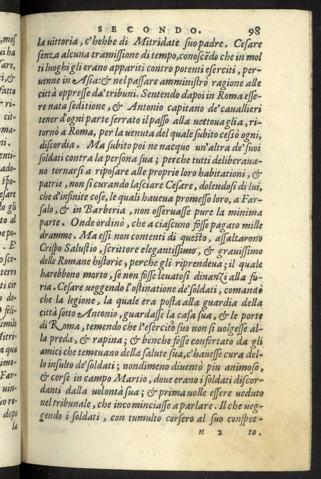 SECONDO. 98
la vittoria, c'hebbe di Mitridate suo padre. Cesare
senza alcuna tramissione di tempo, conoscēdo che in mol
ti luoghi gli erano appariti contro potenti eserciti, per-
uenne in Asia: & nel passare amministrò ragione alle
città oppresse da' tribuni. Sentendo dapoi in Roma esse-
re nata seditione, & Antonio capitano de' cauallieri
tener d'ogni parte serrato il passo alla vettouaglia, ri-
tornò a Roma, per la uenuta del quale subito cessò ogni
discordia. Ma subito poi ne nacque un'altra de' suoi
soldati contra la persona sua; perche tutti deliberaua-
no tornarsi a riposare alle proprie loro habitationi, &
patrie, non si curando lasciare Cesare, dolendosi di lui,
che d'infinite cose, le quali haueua promesso loro, a Far-
salo, & in Barberia, non osseruasse pure la minima
parte. Onde ordinò, che a ciascuno fosse pagato mille
dramme. Ma essi non contenti di questo, assaltarono
Crispo Salustio, scrittore elegantissimo, & grauissimo
delle Romane historie, perche gli riprendeua; il quale
harebbono morto, se non fosse leuatosi dinanzi alla fu-
ria. Cesare ueggendo l'ostinatione de' soldati, comandò
che la legione, la quale era posta alla guardia della
città sotto Antonio, guardasse la casa sua, & le porte
di Roma, temendo che l'esercito suo non si uolgesse al-
la preda, & rapina; & bēche fosse confortato da gli
amici che temeuano della salute sua, c'hauesse cura del-
lo insulto de' soldati; nondimeno diuentò piu animoso,
& corse in campo Martio, doue erano i soldati discor-
danti dalla volontà sua; & prima volle essere ueduto
nel tribunale, che incominciasse a parlare. Il che veg-
gendo i soldati, con tumulto corsero al suo conspet-
n 2 to,